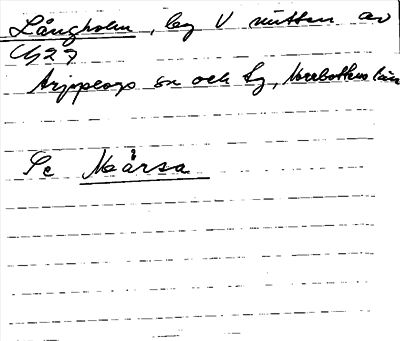 Långholm, beg V mitten av
Arjeplogs sn och lg, Norrbottens län
Se Mårsa